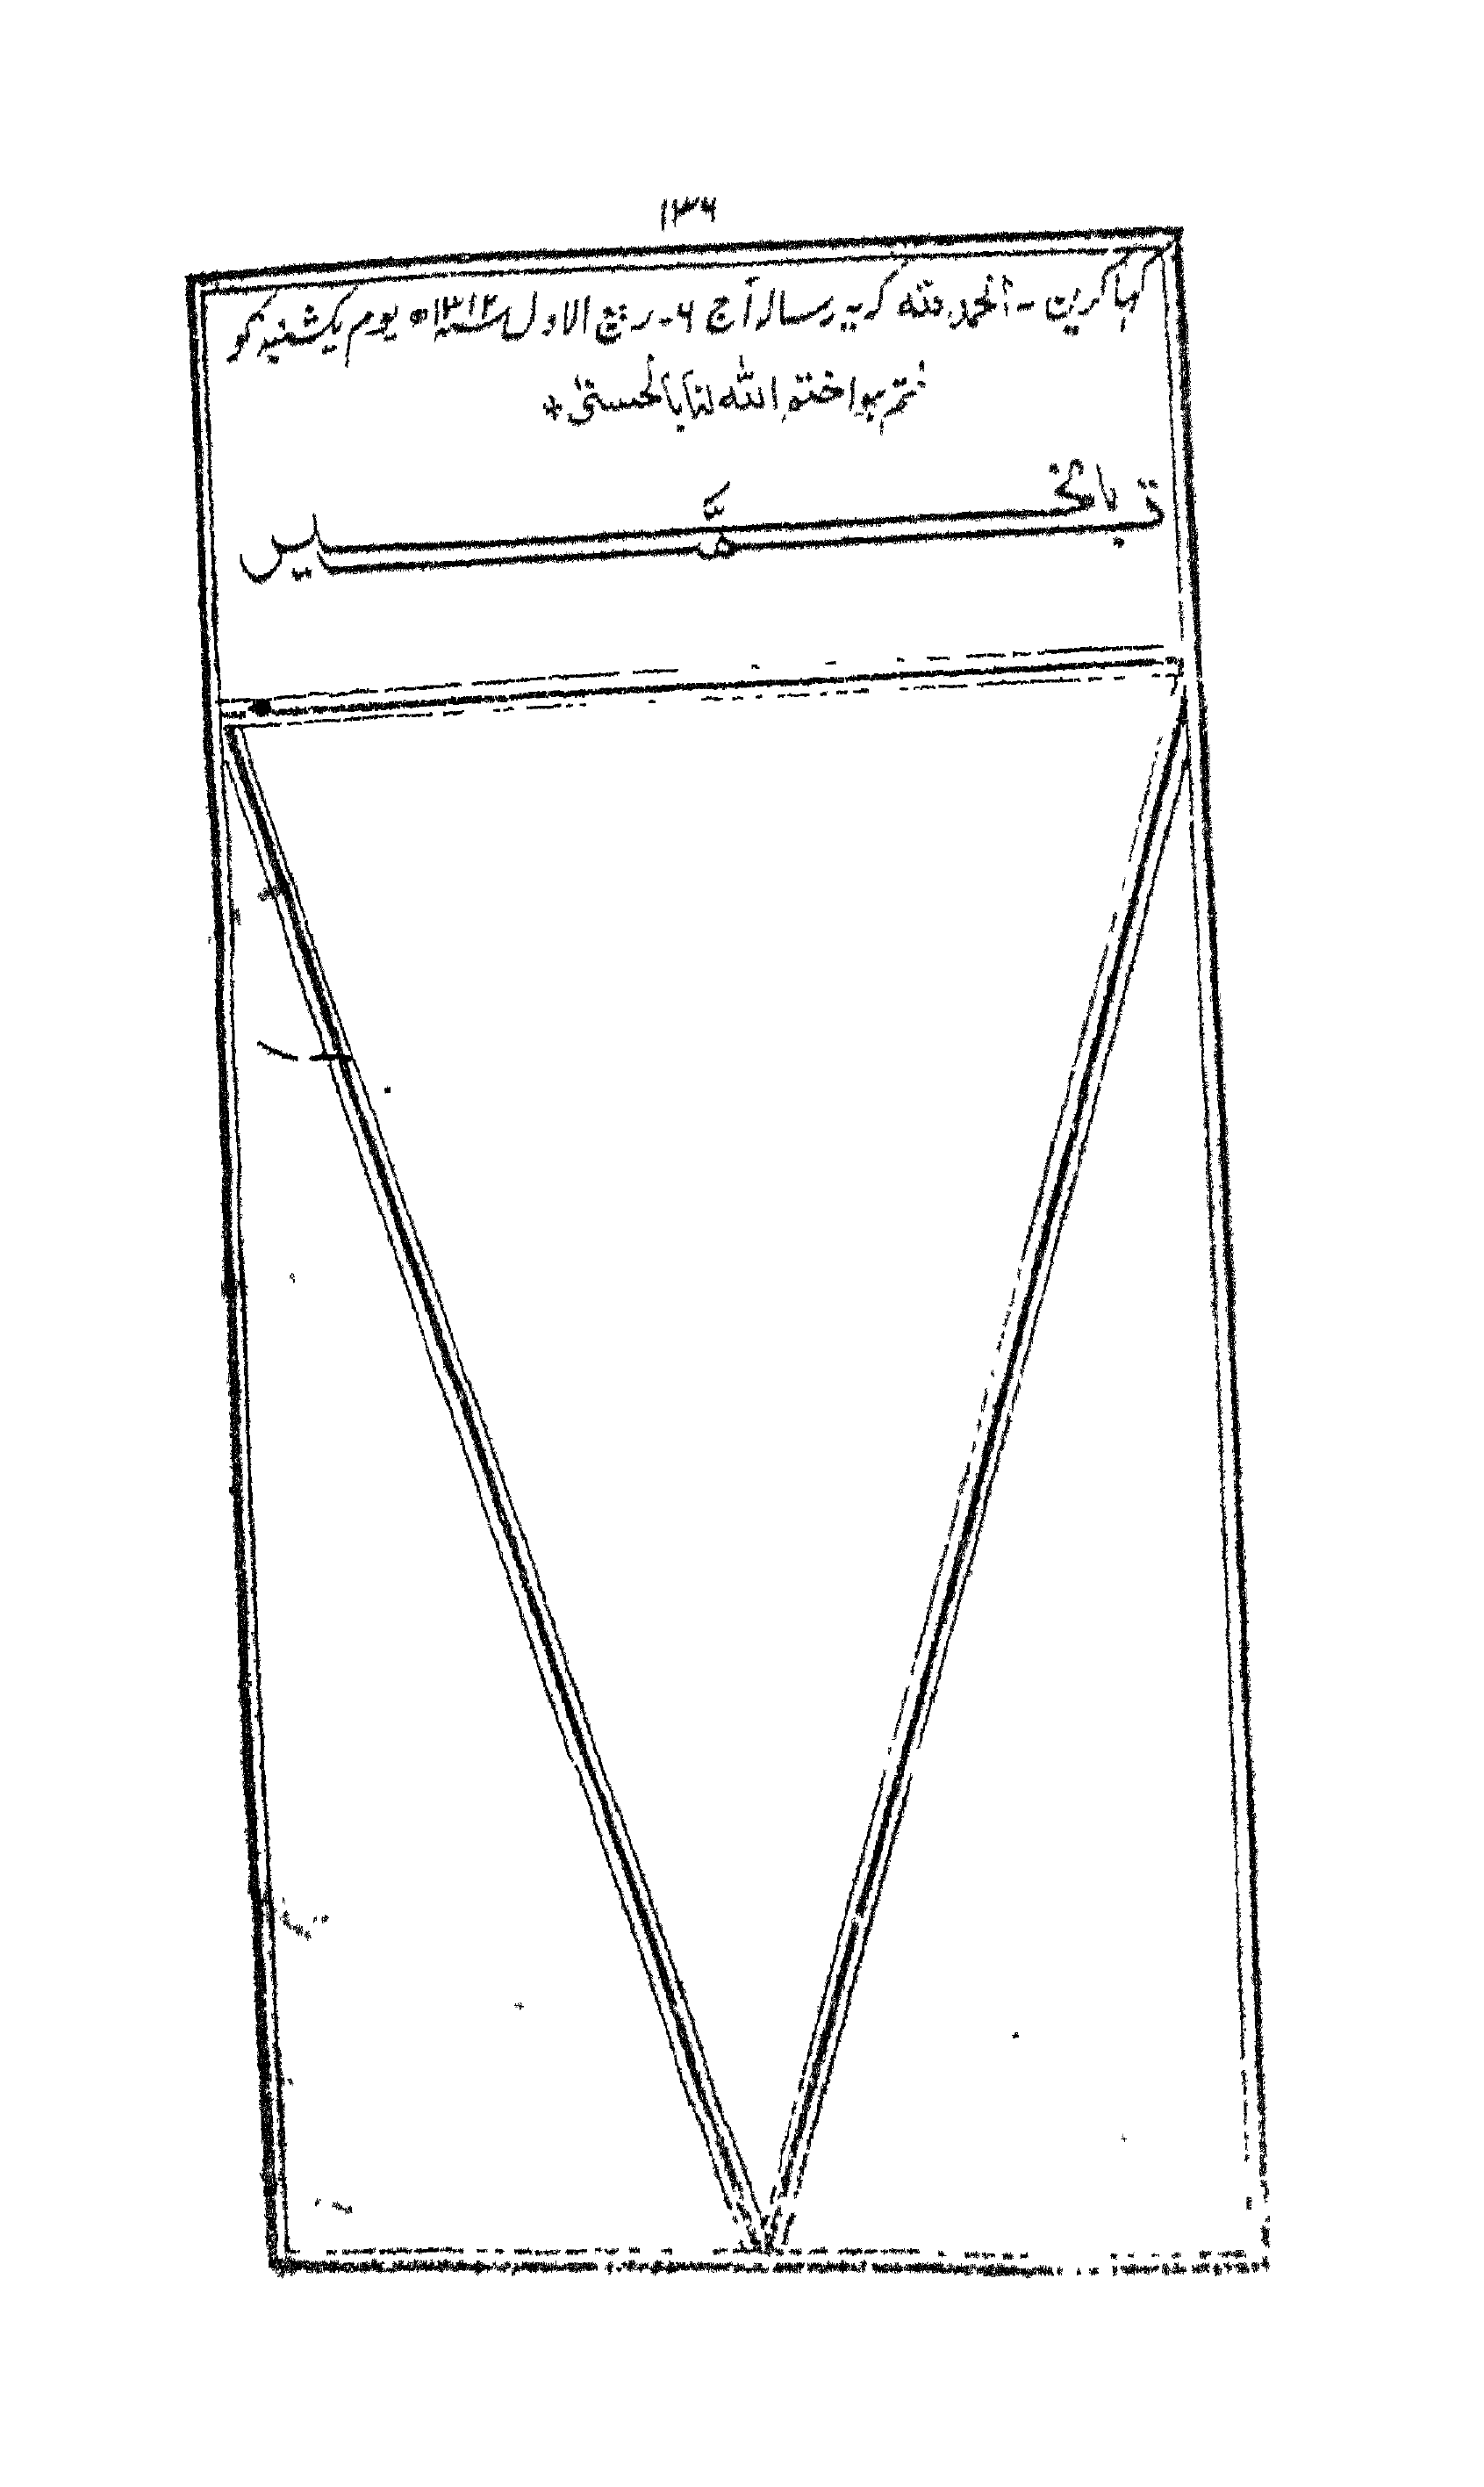 ۱۳۶
کہا کرین - الحمد للہ کہ یہ رسالہ آج ۶ - ربیع الاول سنہ ۱۳۱۲ ہ یوم یکشنبہ کو
ختم ہوا ختم اللہ لنا بالحسنیٰ *
تمّت بالخیر